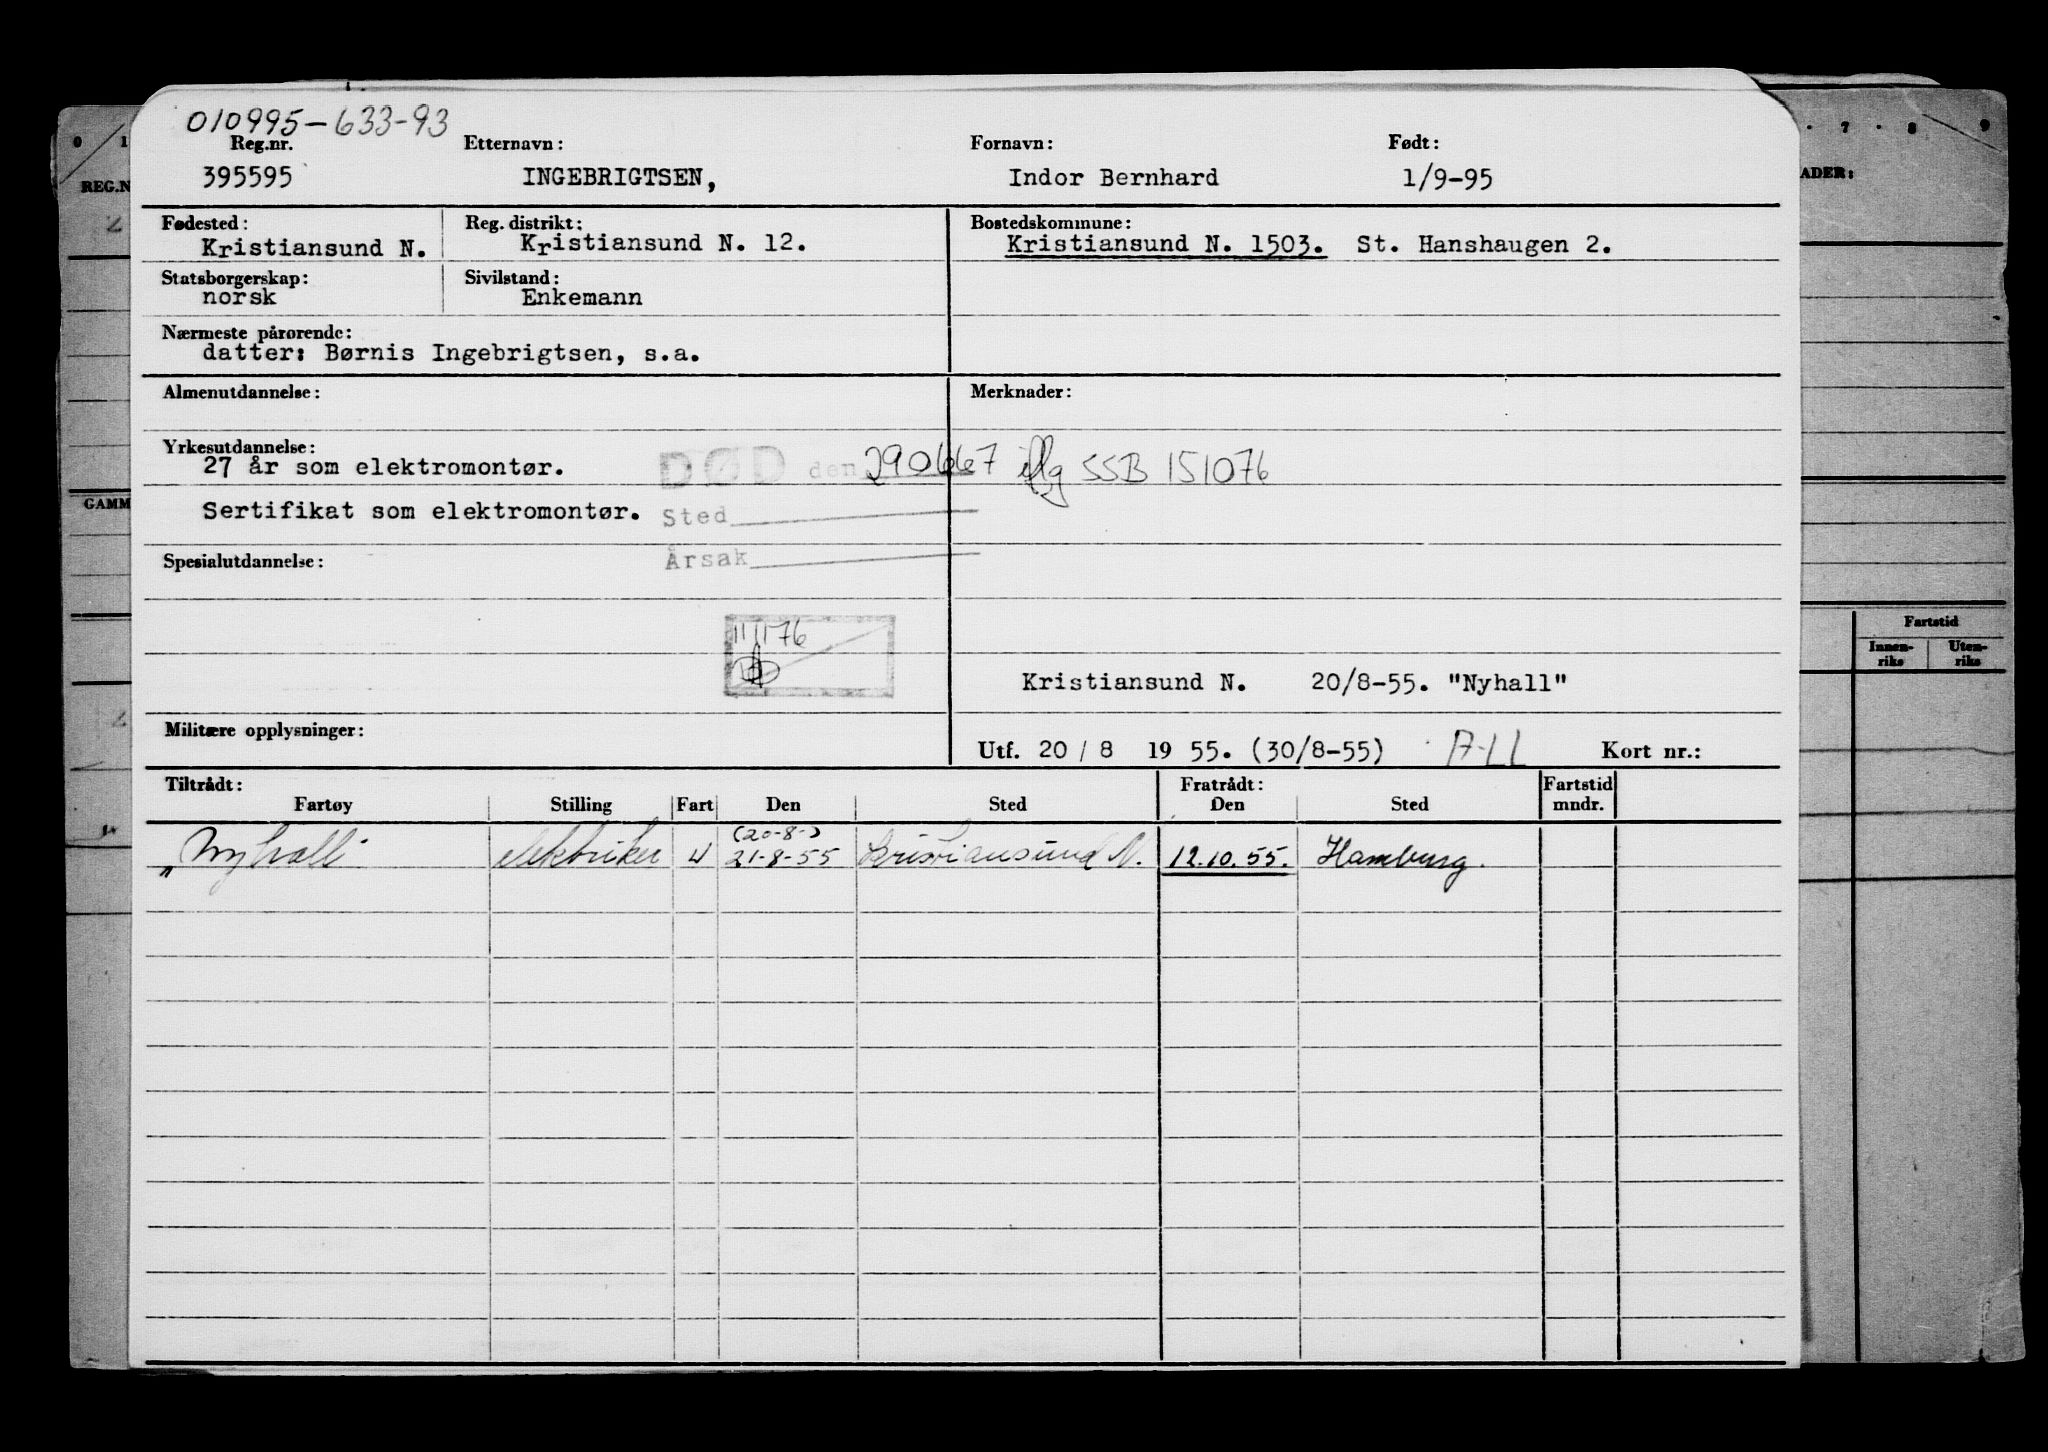 010995-633-93
Reg.nr. Etternavn: Fornavn: Født:
395595 INGEBRIGTSEN, Indor Bernhard 1/9-95
Fødested: Reg. distrikt: Bostedskommune:
Kristiansund N. Kristiansund N. 12. Kristiansund N. 1503. St. Hanshaugen 2.
Statsborgerskap: Sivilstand:
norsk Enkemann
Nærmeste pårørende:
datter: Børnis Ingebrigtsen, s.a.
Almenutdannelse: Merknader:
Yrkesutdannelse:
27 år som elektromontør. DØD den 290667 iflg SSB 151076
Sertifikat som elektromontør. Sted
Spesialutdannelse: Årsak
11/1176
Kristiansund N. 20/8-55. "Nyhall"
Militære opplysninger:
Utf. 20 / 8 19 55. (30/8-55) A-LL Kort nr.:
Tiltrådt: Fratrådt: Fartstid
Fartøy Stilling Fart Den Sted Den Sted mndr.
(20-8-)
"Nyhall" elektriker U 21-8-55 Kristiansund N. 12.10.55. Hamburg.
0 1
REG.N
GAMM
7 8 9
ADER:
Fartstid
Innen-riks Uten-riks